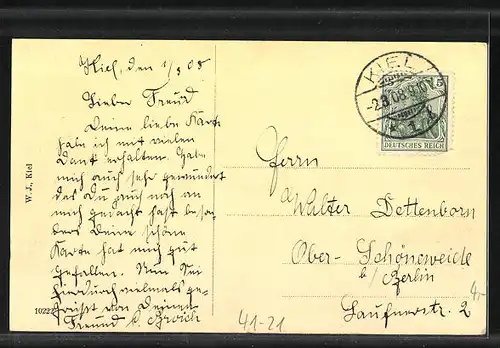 Kiel, den 1/8 08
Lieber Freund
Deine liebe Karte
habe ich mit vielen
Dank erhalten. Habe
mich auch sehr gewundert
das du auch noch an
mich gedacht hast beson-
ders Deine schöne
Karte hat mich gut
gefallen. Nun Sei
hierdurch vielmals ge-
grüßt von Deinen
Freund
W. J., Kiel
KIEL
-2.8.08.9-10V
* 1. z
5
DEUTSCHES REICH
Herrn
Walter Dettenborn
Ober-Schöneweide
b/Berlin
Laufnerstr 2
4,-
41-21